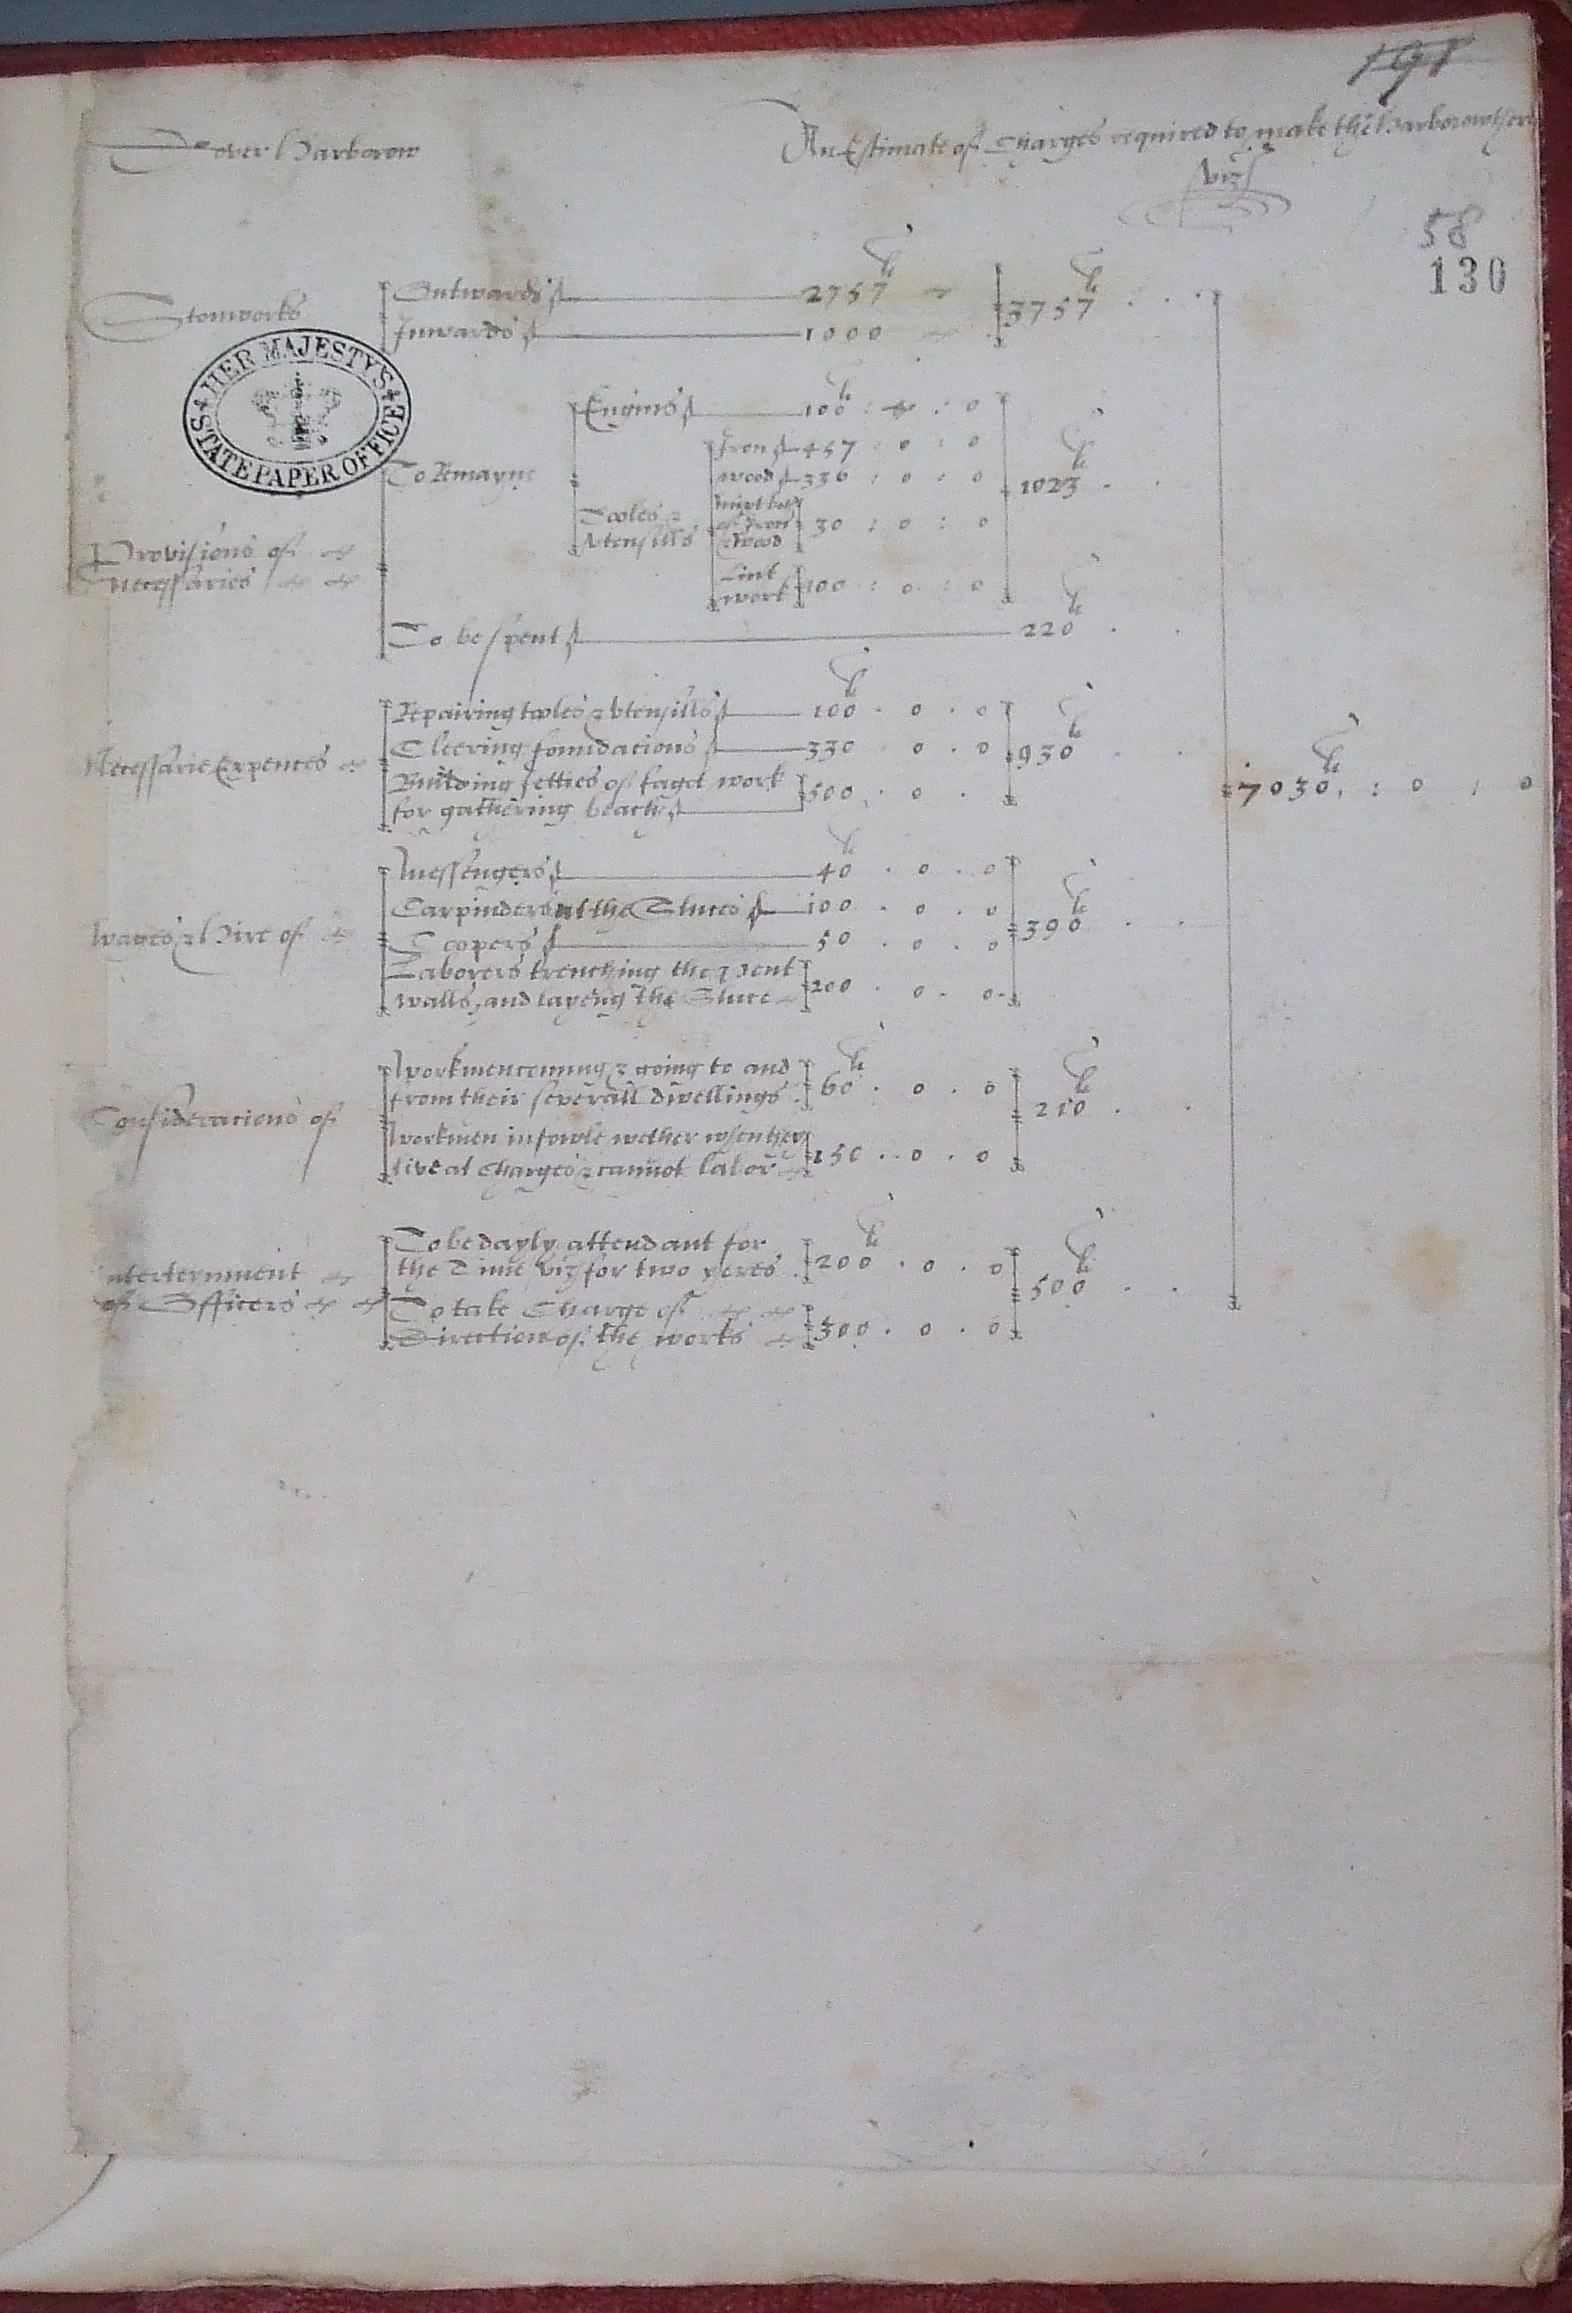 191
Dover Harborow
An Estimate of Charges required to make the Harborow there
viz
58
130
Stonworks
Outwards 2757 li
Inwards 1000
3757 li
HER MAJESTY'S STATE PAPER OFFICE
Provisions of
necessaries
To Remayne
Engins 100 li : : 0
Tooles &
Vtensills
Iron 457 : 0 : 0
wood 336 : 0 : 0
of Iron
& wood
30 : 0 : 0
work
100 : 0 : 0
1023 li
To be spent 220 li
Necessarie Expences
Repairing tooles & Vtensills 100 li . 0 . 0
Cleering foundacions 330 . 0 . 0
Building Jetties of fagot work
for gathering beach
500 . 0 .
930 li
7030 li : 0 : 0
wages & Hire of
Messengers 40 li . 0 . 0
Carpinders at the Sluces 100 . 0 . 0
Coopers 50 . 0 . 0
Laborers trenching the pent
walls, and layeng the Sluce
200 . 0 . 0
390 li
Consideracions of
workmen coming & going to and
from their severall dwellings
60 li . 0 . 0
workmen in fowle wether when they
live at charges & cannot labor
150 . 0 . 0
210 li
nterternment
of Officers
To be dayly attendant for
the Time viz for two yeres
200 li . 0 . 0
To take Charge of
Direction of the works
300 . 0 . 0
500 li